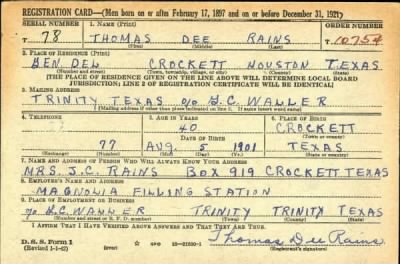 REGISTRATION CARD—(Men born on or after February 17, 1897 and on or before December 31, 1921)
SERIAL NUMBER 1. NAME (Print) ORDER NUMBER
T 78 THOMAS DEE RAINS 10754
(First) (Middle) (Last)
2. PLACE OF RESIDENCE (Print)
BEN DEL CROCKETT HOUSTON TEXAS
(Number and street) (Town, township, village, or city) (County) (State)
[THE PLACE OF RESIDENCE GIVEN ON THE LINE ABOVE WILL DETERMINE LOCAL BOARD
JURISDICTION; LINE 2 OF REGISTRATION CERTIFICATE WILL BE IDENTICAL]
3. MAILING ADDRESS
TRINITY TEXAS c/o G.C. WALLER
[Mailing address if other than place indicated on line 2. If same insert word same]
4. TELEPHONE 5. AGE IN YEARS 6. PLACE OF BIRTH
40 CROCKETT
DATE OF BIRTH (Town or county)
77 AUG. 5 1901 TEXAS
(Exchange) (Number) (Mo.) (Day) (Yr.) (State or country)
7. NAME AND ADDRESS OF PERSON WHO WILL ALWAYS KNOW YOUR ADDRESS
MRS. J.C. RAINS BOX 919 CROCKETT TEXAS
8. EMPLOYER'S NAME AND ADDRESS
MAGNOLIA FILLING STATION
9. PLACE OF EMPLOYMENT OR BUSINESS
c/o G.C. WALLER TRINITY TRINITY TEXAS
(Number and street or R. F. D. number) (Town) (County) (State)
I AFFIRM THAT I HAVE VERIFIED ABOVE ANSWERS AND THAT THEY ARE TRUE.
D. S. S. Form 1
(Revised 1-1-42) GPO 16—21630-1 Thomas Dee Rains
(Registrant's signature)